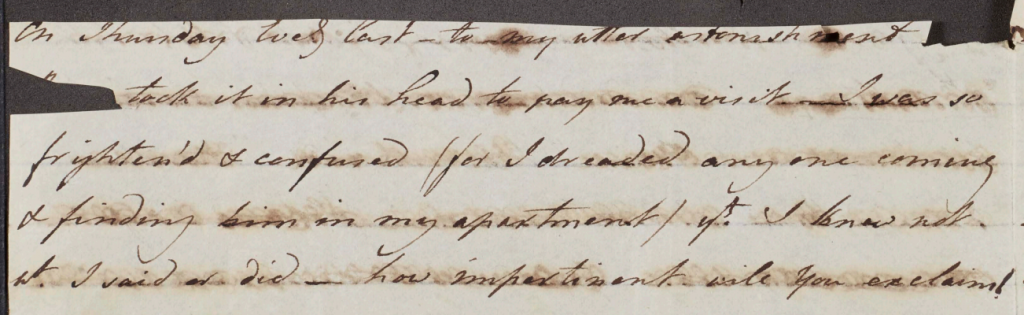 On Thursday Eveg last - to my utter astonishment
took it in his head to pay me a visit - I was so
frighten'd & confused (for I dreaded any one coming
& finding him in my apartment) yt. I knew not.
wt. I said or did - how impertinent will you exclaim!